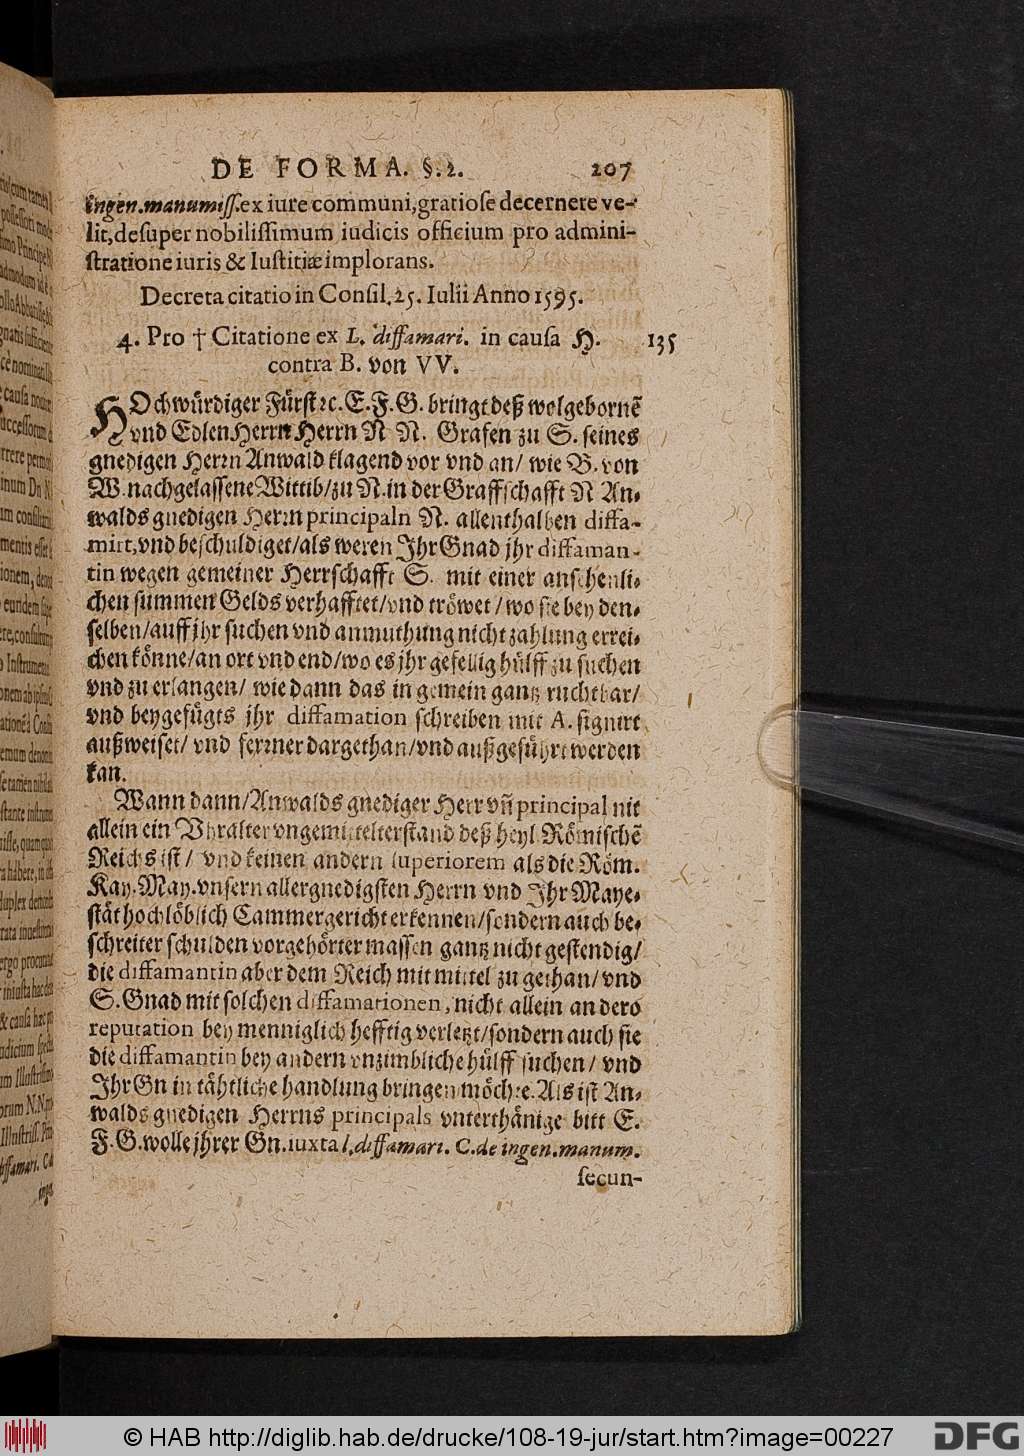 DE FORMA. §. 2. 207
ingen.manumiſſ. ex iure communi, gratioſe decernere ve-
lit, deſuper nobiliſſimum iudicis officium pro admini-
ſtratione iuris & Iuſtitiæ implorans.
Decreta citatio in Conſil. 25. Iulii Anno 1595.
4. Pro † Citatione ex L. diffamari. in cauſa H. 135
contra B. von VV.
HOchwürdiger Fürſt ꝛc. E. F. G. bringt deß wolgebornẽ
vnd Edlen Herrn Herrn N N. Grafen zu S. ſeines
gnedigen Herrn Anwald klagend vor vnd an/ wie B. von
W. nachgelaſſene Wittib/ zu N. in der Graffſchafft N An-
walds gnedigen Herrn principaln N. allenthalben diffa-
mirt, vnd beſchuldiget/ als weren Ihr Gnad jhr diffaman-
tin wegen gemeiner Herrſchafft S. mit einer anſehenli-
chen ſummen Gelds verhafftet/ vnd tröwet / wo ſie bey den-
ſelben/ auff jhr ſuchen vnd anmuthung nicht zahlung errei-
chen könne/ an ort vnd end/ wo es jhr gefellig hülff zu ſuchen
vnd zu erlangen/ wie dann das in gemein gantz ruchtbar/
vnd beygefügts jhr diffamation ſchreiben mit A. ſignirt
außweiſet/ vnd ferrner dargethan/ vnd außgeführt werden
kan.
Wann dann/ Anwalds gnediger Herr vñ principal nit
allein ein Vhralter vngemittelter ſtand deß heyl. Römiſchẽ
Reichs iſt/ vnd keinen andern ſuperiorem als die Röm.
Kay. May. vnſern allergnedigſten Herrn vnd Ihr Maye-
ſtät hochlöblich Cammergericht erkennen/ ſondern auch be-
ſchreiter ſchulden vorgehörter maſſen gantz nicht geſtendig/
die diffamantin aber dem Reich mit mittel zu gethan/ vnd
S. Gnad mit ſolchen diffamationen, nicht allein an dero
reputation bey menniglich hefftig verletzt/ ſondern auch ſie
die diffamantin bey andern vnzimbliche hülff ſuchen/ vnd
Ihr Gn in tähtliche handlung bringen möchte. Als iſt An-
walds gnedigen Herrns principals vnterthänige bitt E.
F. G. wolle jhrer Gn. iuxta l. diffamari. C. de ingen. manum.
ſecun-
© HAB http://diglib.hab.de/drucke/108-19-jur/start.htm?image=00227
DFG